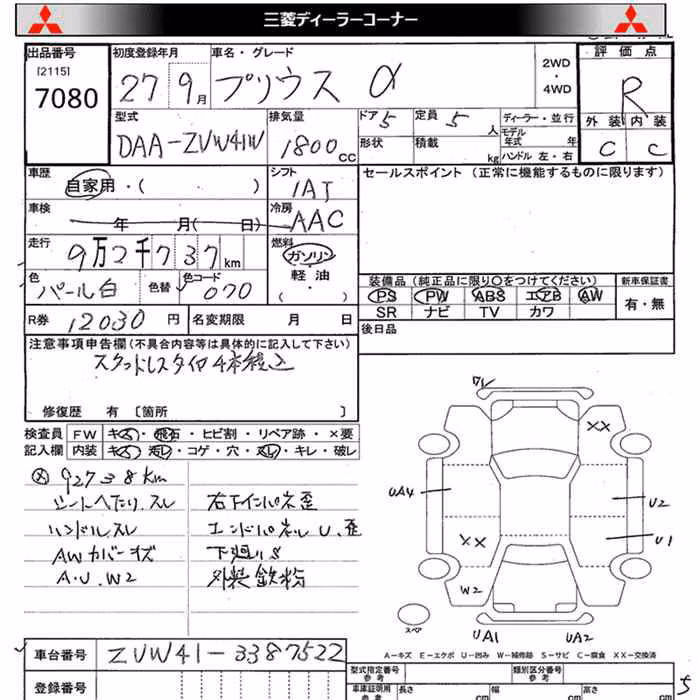 三菱ディーラーコーナー
出品番号 初度登録年月 車名・グレード 2WD ・ 4WD 評価点
[2115]
7080 27 9月 プリウス α R
型式 排気量 ドア 5 定員 5人 ディーラー・並行 外装 内装
DAA-ZVW41W 1800CC 形状 積載 kg モデル年式 年 ハンドル 左・右 C C
車歴 シフト セールスポイント (正常に機能するものに限ります)
自家用・( ) IAT
車検 年 月( 日) 冷房 AAC
走行 9万2千737km 燃料 ガソリン
軽・油
・( )
色 パール白 色替 色コード 070
装備品 (純正品に限り○をつけてください) 新車保証書
PS PW ABS エアB AW 有・無
SR ナビ TV カワ
R券 12030円 名変期限 月 日 後日品
注意事項申告欄(不具合内容等は具体的に記入して下さい)
スタッドレスタイヤ4本積込
修復歴 有 [箇所 ]
検査員 FW キズ・飛石・ヒビ割・リペア跡・×要
記入欄 内装 キズ・汚レ・コゲ・穴・スレ・キレ・破レ
92738km
シートヘたり、スレ 右下インパネ歪
ハンドルスレ エンドパネルU、歪
AWカバーキズ 下廻りS
A・U、W2 外装鉄粉
XX
UA4 U2
XX U1
W2
スペア
UA1 UA2
A−キズ E−エクボ U−凹み W−補修跡 S−サビ C−腐食 XX−交換済
車台番号 ZVW41-3387522
登録番号
型式指定番号 参考 類別区分番号 参考
車庫証明用 参考 長さ cm 幅 cm 高さ cm